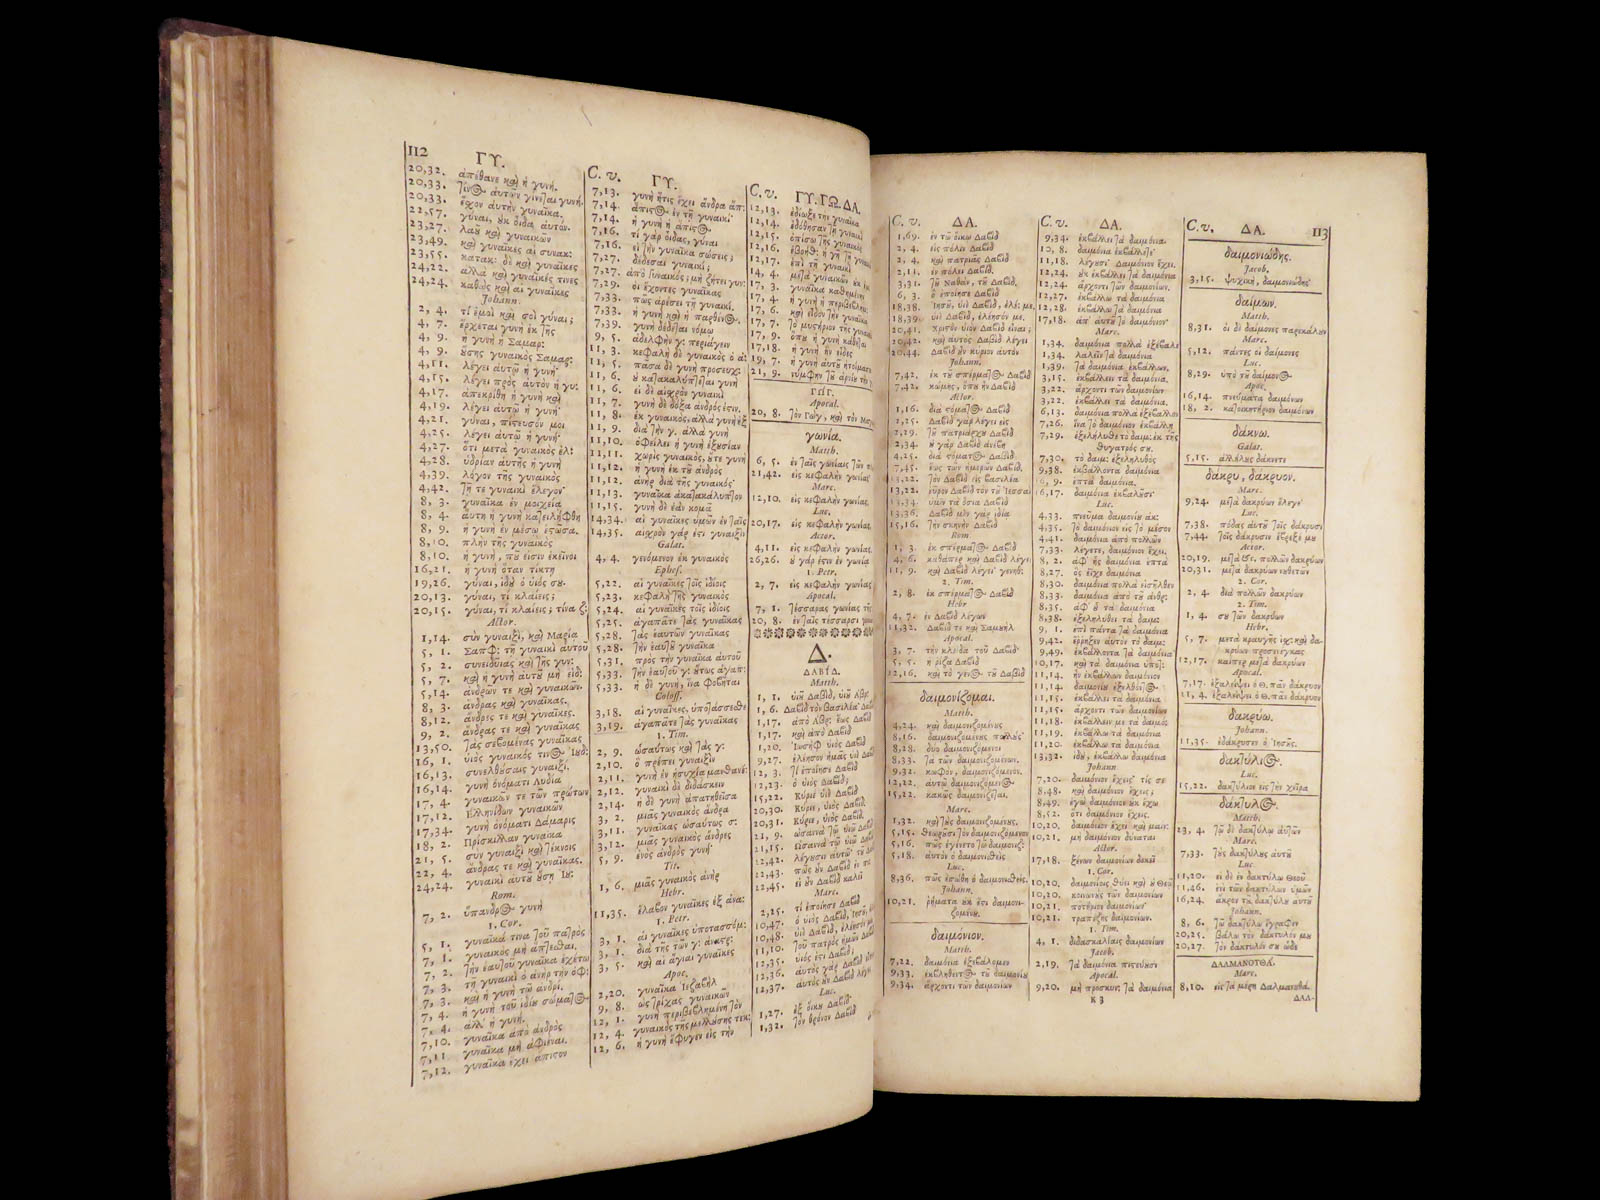 112 ΓΥ.
20,32. ἀπέθανε καὶ ἡ γυνή.
20,33. τίνος αὐτῶν γίνεται γυνή.
20,33. ἔσχον αὐτὴν γυναῖκα.
22,57. γύναι, οὐκ οἶδα αὐτόν.
23,27. λαοῦ καὶ γυναικῶν
23,49. καὶ γυναῖκες αἱ συνακ:
23,55. κατακ: δὲ καὶ γυναῖκες
24,22. ἀλλὰ καὶ γυναῖκές τινες
24,24. καθὼς καὶ αἱ γυναῖκες
Johann.
2, 4. τί ἐμοὶ καὶ σοὶ γύναι;
4, 7. ἔρχεται γυνὴ ἐκ τῆς
4, 9. ἡ γυνὴ ἡ Σαμαρ:
4, 9. οὔσης γυναικὸς Σαμαρ:
4,11. λέγει αὐτῷ ἡ γυνή
4,15. λέγει πρὸς αὐτὸν ἡ γυ:
4,17. ἀπεκρίθη ἡ γυνὴ καὶ
4,19. λέγει αὐτῷ ἡ γυνή
4,21. γύναι, πίστευσόν μοι
4,25. λέγει αὐτῷ ἡ γυνή
4,27. ὅτι μετὰ γυναικὸς ἐλ:
4,28. ὑδρίαν αὐτῆς ἡ γυνή
4,39. λόγον τῆς γυναικὸς
4,42. τῇ τε γυναικὶ ἔλεγον
8, 3. γυναῖκα ἐν μοιχείᾳ
8, 4. αὕτη ἡ γυνὴ κατειλήφθη
8, 9. ἡ γυνὴ ἐν μέσῳ ἑστῶσα.
8,10. πλὴν τῆς γυναικὸς
8,10. ἡ γυνή, ποῦ εἰσιν ἐκεῖνοι
16,21. ἡ γυνὴ ὅταν τίκτῃ
19,26. γύναι, ἰδοὺ ὁ υἱός σου.
20,13. γύναι, τί κλαίεις;
20,15. γύναι, τί κλαίεις; τίνα ζ:
Actor.
1,14. σὺν γυναιξὶ, καὶ Μαρίᾳ
5, 1. Σαπφ: τῇ γυναικὶ αὐτοῦ
5, 2. συνειδυίας καὶ τῆς γυν:
5, 7. καὶ ἡ γυνὴ αὐτοῦ μὴ εἰδ:
5,14. ἀνδρῶν τε καὶ γυναικῶν.
8, 3. ἄνδρας καὶ γυναῖκας.
8,12. ἄνδρες τε καὶ γυναῖκες.
9, 2. ἄνδρας τε καὶ γυναῖκας
13,50. τὰς σεβομένας γυναῖκας
16, 1. υἱὸς γυναικός τινος Ἰουδ:
16,13. συνελθούσαις γυναιξί.
16,14. γυνὴ ὀνόματι Λυδία
17, 4. γυναικῶν τε τῶν πρώτων
17,12. Ἑλληνίδων γυναικῶν
17,34. γυνὴ ὀνόματι Δάμαρις
18, 2. Πρίσκιλλαν γυναῖκα
21, 5. σὺν γυναιξὶ καὶ τέκνοις
22, 4. ἄνδρας τε καὶ γυναῖκας.
24,24. γυναικὶ αὐτοῦ οὔσῃ Ἰου:
Rom.
7, 2. ὕπανδρος γυνή
1. Cor.
5, 1. γυναῖκά τινα τοῦ πατρὸς
7, 1. γυναικὸς μὴ ἅπτεσθαι.
7, 2. τὴν ἑαυτοῦ γυναῖκα ἐχέτω
7, 3. τῇ γυναικὶ ὁ ἀνὴρ τὴν ὀφ:
7, 3. καὶ ἡ γυνὴ τῷ ἀνδρί.
7, 4. ἡ γυνὴ τοῦ ἰδίου σώματος
7, 4. ἀλλ' ἡ γυνή.
7,10. γυναῖκα ἀπὸ ἀνδρὸς
7,11 γυναῖκα μὴ ἀφιέναι.
7,12. γυναῖκα ἔχει ἄπιστον
C. v. ΓΥ.
7,13. γυνὴ ἥτις ἔχει ἄνδρα ἄπ:
7,14. ἄπιστος ἐν τῇ γυναικί
7,14. ἡ γυνὴ ἡ ἄπιστος
7,16. τί γὰρ οἶδας, γύναι
7,16. εἰ τὴν γυναῖκα σώσεις;
7,27. δέδεσαι γυναικί;
7,27. ἀπὸ γυναικός; μὴ ζήτει γυν:
7,29. οἱ ἔχοντες γυναῖκας
7,33. πῶς ἀρέσει τῇ γυναικί.
7,33. ἡ γυνὴ καὶ ἡ παρθένος.
7,39. γυνὴ δέδεται νόμῳ
9, 5. ἀδελφὴν γυ: περιάγειν
11, 3. κεφαλὴ δὲ γυναικὸς ὁ ἀν
11, 5. πᾶσα δὲ γυνὴ προσευχ:
11, 6. οὐ κατακαλύπτεται γυνή
11, 6. εἰ δὲ αἰσχρὸν γυναικὶ
11, 7. γυνὴ δὲ δόξα ἀνδρός ἐστιν.
11, 8. ἐκ γυναικὸς, ἀλλὰ γυνὴ ἐξ
11, 9. διὰ τὴν γ. ἀλλὰ γυνὴ
11,10. ὀφείλει ἡ γυνὴ ἐξουσίαν
11,11. χωρὶς γυναικὸς, οὔτε γυνή
11,12. ἡ γυνὴ ἐκ τοῦ ἀνδρὸς
11,12. ἀνὴρ διὰ τῆς γυναικός
11,13. γυναῖκα ἀκατακάλυπτον
11,15. γυνὴ δὲ ἐὰν κομᾷ
14,34. αἱ γυναῖκες ὑμῶν ἐν ταῖς
14,35. αἰσχρὸν γάρ ἐστι γυναιξὶν
Galat.
4, 4. γενόμενον ἐκ γυναικὸς
Ephes.
5,22. αἱ γυναῖκες τοῖς ἰδίοις
5,23. κεφαλὴ τῆς γυναικὸς
5,24. αἱ γυναῖκες τοῖς ἰδίοις
5,25. ἀγαπᾶτε τὰς γυναῖκας
5,28. τὰς ἑαυτῶν γυναῖκας
5,28. τὴν ἑαυτοῦ γυναῖκα
5,31. πρὸς τὴν γυναῖκα αὐτοῦ
5,33. τὴν ἑαυτοῦ γ: οὕτως ἀγαπ:
5,33. ἡ δὲ γυνὴ, ἵνα φοβῆται
Coloss.
3,18. αἱ γυναῖκες, ὑποτάσσεσθε
3,19. ἀγαπᾶτε τὰς γυναῖκας
1. Tim.
2, 9. ὡσαύτως καὶ τὰς γ:
2,10. ὃ πρέπει γυναιξὶν
2,11. γυνὴ ἐν ἡσυχίᾳ μανθανέ:
2,12. γυναικὶ δὲ διδάσκειν
2,14. ἡ δὲ γυνὴ ἀπατηθεῖσα
3, 2. μιᾶς γυναικὸς ἄνδρα
3,11. γυναῖκας ὡσαύτως σ:
3,12. μιᾶς γυναικὸς ἄνδρες
5, 9. ἑνὸς ἀνδρὸς γυνή
Tit.
1, 6. μιᾶς γυναικὸς ἀνὴρ
Hebr.
11,35. ἔλαβον γυναῖκες ἐξ ἀνα:
1. Petr.
3, 1. αἱ γυναῖκες ὑποτασσόμ:
3, 1. διὰ τῆς τῶν γ: ἀναστρ:
3, 5. καὶ αἱ ἅγιαι γυναῖκες
Apoc.
2,20. γυναῖκα Ἰεζαβὴλ
9, 8. ὡς τρίχας γυναικῶν
12, 1. γυνὴ περιβεβλημένη τὸν
12, 4. γυναικὸς τῆς μελλούσης τεκ:
12, 6. ἡ γυνὴ ἔφυγεν εἰς τὴν
C. v. ΓΥ. ΓΩ. ΔΑ.
12,13. ἐδίωξε τὴν γυναῖκα
12,14. ἐδόθησαν τῇ γυναικὶ
12,15. ὀπίσω τῆς γυναικὸς
12,16. ἐβοήθ: ἡ γῆ τῇ γυναικὶ
12,17. ἐπὶ τῇ γυναικί
14, 4. μετὰ γυναικῶν οὐκ
17, 3. γυναῖκα καθημένην
17, 4. ἡ γυνὴ ἡ περιβεβλημ
17, 6. καὶ εἶδον τὴν γυναῖκα
17, 7. τὸ μυστήριον τῆς γυναικὸς
17, 9. ὅπου ἡ γυνὴ κάθηται
17,18. ἡ γυνὴ ἣν εἶδες
19, 7. ἡ γυνὴ αὐτοῦ ἡτοίμασεν
21, 9. νύμφην τοῦ ἀρνίου τὴν
ΓΩΓ.
Apocal.
20, 8. τὸν Γὼγ, καὶ τὸν Μαγὼγ
γωνία.
Matth.
6, 5. ἐν ταῖς γωνίαις τῶν
21,42. εἰς κεφαλὴν γωνίας
Marc.
12,10. εἰς κεφαλὴν γωνίας.
Luc.
20,17. εἰς κεφαλὴν γωνίας.
Actor.
4,11. εἰς κεφαλὴν γωνίας.
26,26. οὐ γάρ ἐστιν ἐν γωνίᾳ
1. Petr.
2, 7. εἰς κεφαλὴν γωνίας
Apocal.
7, 1. τέσσαρας γωνίας τῆς
20, 8. ἐν ταῖς τέσσαρσι γωνί
Δ.
ΔΑΒΙΔ.
Matth.
1, 1. υἱοῦ Δαβὶδ, υἱοῦ Ἀβρ
1, 6. Δαβὶδ τὸν βασιλέα
1,17. ἀπὸ Ἀβρ: ἕως Δαβὶδ
1,17. καὶ ἀπὸ Δαβὶδ
1,20. Ἰωσὴφ υἱὸς Δαβὶδ
9,27. ἐλέησον ἡμᾶς υἱὲ Δαβ
12, 3. τί ἐποίησε Δαβὶδ
12,23. ὁ υἱὸς Δαβίδ;
15,22. Κύριε υἱὲ Δαβίδ
20,30. Κύριε, υἱὸς Δαβίδ.
20,31. Κύριε, υἱὸς Δαβίδ.
21, 9. ὡσαννὰ τῷ υἱῷ Δαβ
21,15. ὡσαννὰ τῷ υἱῷ Δαβ
22,42. λέγουσιν αὐτῷ τοῦ Δα
22,43. πῶς οὖν Δαβὶδ ἐν π
22,45. εἰ οὖν Δαβὶδ καλεῖ
Marc.
2,25. τί ἐποίησε Δαβὶδ
10,47. ὁ υἱὸς Δαβὶδ, Ἰησοῦ,
10,48. υἱὲ Δαβὶδ, ἐλέησόν μ
11,10. τοῦ πατρὸς ἡμῶν Δαβὶδ
12,35. υἱός ἐστι Δαβίδ;
12,36. αὐτὸς γὰρ Δαβὶδ
12,37. αὐτὸς οὖν Δαβὶδ λέγει
Luc.
1,27. ἐξ οἴκου Δαβίδ
1,32. τὸν θρόνον Δαβὶδ
C. v. ΔΑ.
1,69. ἐν τῷ οἴκῳ Δαβὶδ
2, 4. εἰς πόλιν Δαβὶδ
2, 4. καὶ πατριᾶς Δαβίδ
2,11. ἐν πόλει Δαβίδ.
3,31. τοῦ Ναθὰν, τοῦ Δαβίδ,
6, 3. ὃ ἐποίησε Δαβὶδ
18,38. Ἰησοῦ, υἱὲ Δαβὶδ, ἐλέ: με.
18,39. υἱὲ Δαβίδ, ἐλέησόν με.
20,41. χριστὸν υἱὸν Δαβὶδ εἶναι;
20,42. καὶ αὐτὸς Δαβὶδ λέγει
20,44. Δαβὶδ οὖν κύριον αὐτὸν
Johann.
7,42. ἐκ τοῦ σπέρματος Δαβὶδ
7,42. κώμης, ὅπου ἦν Δαβίδ
Actor.
1,16. διὰ στόματος Δαβὶδ
2,25. Δαβὶδ γὰρ λέγει εἰς
2,29. τοῦ πατριάρχου Δαβὶδ
2,34. οὐ γὰρ Δαβὶδ ἀνέβη
4,25. διὰ στόματος Δαβὶδ.
7,45. ἕως τῶν ἡμερῶν Δαβίδ.
13,22. τὸν Δαβὶδ εἰς βασιλέα
13,22. εὗρον Δαβὶδ τὸν τοῦ Ἰεσσαὶ
13,34. ὑμῖν τὰ ὅσια Δαβὶδ
13,36. Δαβὶδ μὲν γὰρ ἰδίᾳ
15,16. τὴν σκηνὴν Δαβὶδ
Rom
1, 3. ἐκ σπέρματος Δαβὶδ
4, 6. καθάπερ καὶ Δαβὶδ λέγει
11, 9. καὶ Δαβὶδ λέγει γενηθ:
2. Tim.
2, 8. ἐκ σπέρματος Δαβὶδ
Hebr.
4, 7. ἐν Δαβὶδ λέγων
11,32. Δαβίδ τε καὶ Σαμουὴλ
Apocal.
3, 7. τὴν κλεῖδα τοῦ Δαβίδ
5, 5. ἡ ῥίζα Δαβίδ
22,16. καὶ τὸ γένος τοῦ Δαβίδ
δαιμονίζομαι.
Matth.
4,24. καὶ δαιμονιζομένους
8,16. δαιμονιζομένους πολλούς
8,28. δύο δαιμονιζόμενοι
8,33. τὰ τῶν δαιμονιζομένων.
9,32. κωφὸν, δαιμονιζόμενον.
12,22. αὐτῷ δαιμονιζόμενος
15,22. κακῶς δαιμονίζεται.
Marc.
1,32. καὶ τοὺς δαιμονιζομένους.
5,15. θεωροῦσι τὸν δαιμονιζόμενον
5,16. πῶς ἐγένετο τῷ δαιμονιζ:
5,18. αὐτὸν ὁ δαιμονισθεὶς
Luc.
8,36. πῶς ἐσώθη ὁ δαιμονισθείς.
Johann.
10,21. ῥήματα οὐκ ἔστι δαιμονι-
ζομένου.
δαιμόνιον.
Matth.
7,22. δαιμόνια ἐξεβάλομεν
9,33. ἐκβληθέντος τοῦ δαιμονίου
9,34. ἄρχοντι τῶν δαιμονίων
C. v. ΔΑ.
9,34. ἐκβάλλει τὰ δαιμόνια.
10, 8. δαιμόνια ἐκβάλλετε
11,18. λέγουσι Δαιμόνιον ἔχει.
12,24. οὐκ ἐκβάλλει τὰ δαιμόνια
12,24. ἄρχοντι τῶν δαιμονίων.
12,27. ἐκβάλλω τὰ δαιμόνια
12,28. ἐκβάλλω τὰ δαιμόνια
17,18. ἀπ' αὐτοῦ τὸ δαιμόνιον
Marc.
1,34. δαιμόνια πολλὰ ἐξέβαλε
1,34. λαλεῖν τὰ δαιμόνια
1,39. τὰ δαιμόνια ἐκβάλλων.
3,15. ἐκβάλλειν τὰ δαιμόνια.
3,22. ἄρχοντι τῶν δαιμονίων
3,22. ἐκβάλλει τὰ δαιμόνια.
6,13. δαιμόνια πολλὰ ἐξέβαλλον
7,26. ἵνα τὸ δαιμόνιον ἐκβάλλῃ
7,29. ἐξελήλυθε τὸ δαιμ: ἐκ τῆς
θυγατρός σου.
7,30. τὸ δαιμ: ἐξεληλυθὸς
9,38. ἐκβάλλοντα δαιμόνια
16, 9. ἑπτὰ δαιμόνια.
16,17. δαιμόνια ἐκβαλοῦσι
Luc.
4,33. πνεῦμα δαιμονίου ἀκ:
4,35. τὸ δαιμόνιον εἰς τὸ μέσον
4,41. δαιμόνια ἀπὸ πολλῶν
7,33. λέγετε, δαιμόνιον ἔχει.
8, 2. ἀφ' ἧς δαιμόνια ἑπτὰ
8,27. ὃς εἶχε δαιμόνια
8,30. δαιμόνια πολλὰ εἰσῆλθεν
8,33. δαιμόνια ἀπὸ τοῦ ἀνθρ:
8,35. ἀφ' οὗ τὰ δαιμόνια
8,38. ἐξεληλύθει τὰ δαιμ:
9, 1. ἐπὶ πάντα τὰ δαιμόνια
9,42. ἔρρηξεν αὐτὸν τὸ δαιμ:
9,49. ἐκβάλλοντα τὰ δαιμόνια
10,17. καὶ τὰ δαιμόνια ὑποτ:
11,14. ἦν ἐκβάλλων δαιμόνιον
11,14. δαιμονίου ἐξελθόντος
11,15. ἐκβάλλει τὰ δαιμόνια
11,15. ἄρχοντι τῶν δαιμονίων
11,18. ἐκβάλλειν με τὰ δαιμόν
11,19. ἐκβάλλω τὰ δαιμόνια
11,20. ἐκβάλλω τὰ δαιμόνια
13,32. ἰδοὺ, ἐκβάλλω δαιμόνια
Johann
7,20. δαιμόνιον ἔχεις τίς σε
8,48. καὶ δαιμόνιον ἔχεις;
8,49. ἐγὼ δαιμόνιον οὐκ ἔχω
8,52. ὅτι δαιμόνιον ἔχεις.
10,20. δαιμόνιον ἔχει καὶ μαίν:
10,21. μὴ δαιμόνιον δύναται
Actor.
17,18. ξένων δαιμονίων δοκεῖ
1. Cor.
10,20. δαιμονίοις θύει καὶ οὐ Θεῷ
10,20. κοινωνοὺς τῶν δαιμονίων
10,21. ποτήριον δαιμονίων
10,21. τραπέζης δαιμονίων.
1. Tim.
4, 1. διδασκαλίαις δαιμονίων
Jacob.
2,19. τὰ δαιμόνια πιστεύουσι
Apocal.
9,20. μὴ προσκυν: τὰ δαιμόνια
K 3
C. v. ΔΑ. 113
δαιμονιώδης.
Jacob.
3,15. ψυχικὴ, δαιμονιώδης
δαίμων.
Matth.
8,31. οἱ δὲ δαίμονες παρεκάλουν
Marc.
5,12. πάντες οἱ δαίμονες
Luc.
8,29. ὑπὸ τοῦ δαίμονος
Apoc.
16,14. πνεύματα δαιμόνων
18, 2. κατοικητήριον δαιμόνων
δάκνω.
Galat.
5,15. ἀλλήλους δάκνετε
δάκρυ, δάκρυον.
Marc.
9,24. μετὰ δακρύων ἔλεγε
Luc.
7,38. πόδας αὐτοῦ τοῖς δάκρυσι
7,44. τοῖς δάκρυσιν ἔβρεξέ μου
Actor.
20,19. πολλῶν δακρύων
20,31. μετὰ δακρύων νουθετῶν
2. Cor.
2, 4. διὰ πολλῶν δακρύων
2. Tim.
1, 4. σου τῶν δακρύων
Hebr.
5, 7. μετὰ κραυγῆς ἰσχ: καὶ δα-
κρύων προσενέγκας
12,17. καίπερ μετὰ δακρύων
Apocal.
7,17. ἐξαλείψει ὁ Θ. πᾶν δάκρυον
21, 4. ἐξαλείψει ὁ Θ. πᾶν δάκρυον
δακρύω.
Johann.
11,35. ἐδάκρυσεν ὁ Ἰησοῦς.
δακτύλιος.
Luc.
15,22. δακτύλιον εἰς τὴν χεῖρα
δάκτυλος.
Matth.
23, 4. τῷ δὲ δακτύλῳ αὐτῶν
Marc.
7,33. τοὺς δακτύλους αὐτοῦ
11,20. εἰ δὲ ἐν δακτύλῳ Θεοῦ
11,46. ἑνὶ τῶν δακτύλων ὑμῶν
16,24. ἄκρον τοῦ δακτύλου αὐτοῦ
Johann.
8, 6. τῷ δακτύλῳ ἔγραφεν
20,25. βάλω τὸν δάκτυλόν μου
20,27. τὸν δάκτυλόν σου ὧδε
ΔΑΛΜΑΝΟΥΘΑ.
Marc.
8,10. εἰς τὰ μέρη Δαλμανουθά.
ΔΑΛ-